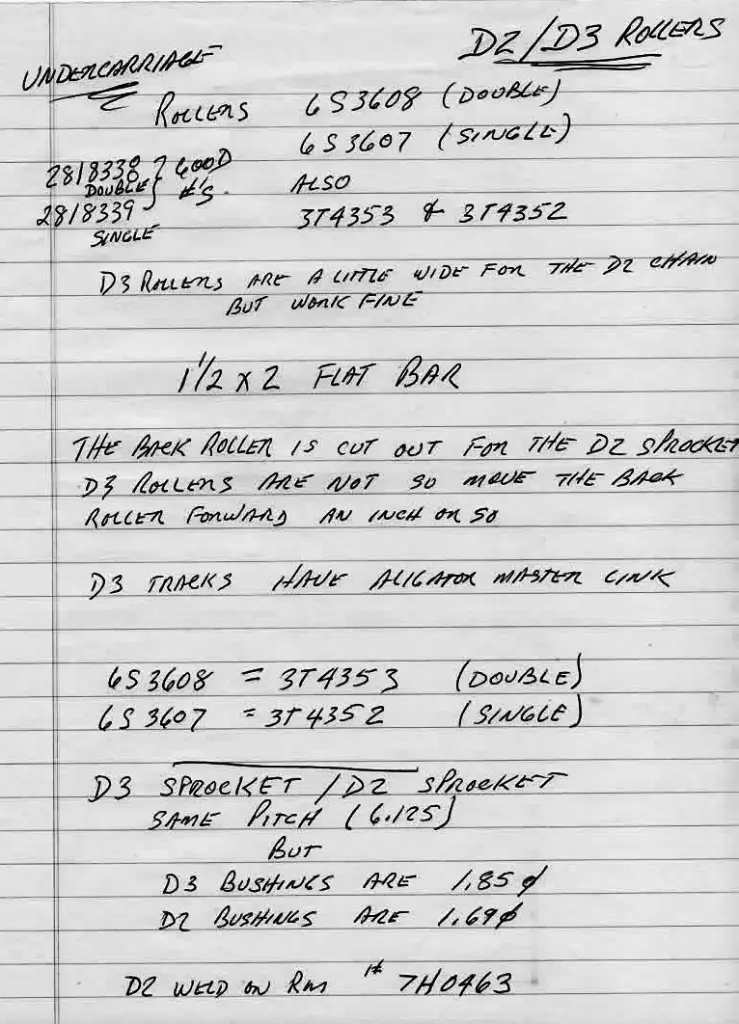 D2/D3 ROLLERS
UNDERCARRIAGE
ROLLERS 6S3608 (DOUBLE)
6S3607 (SINGLE)
2818338 } GOOD
DOUBLE #'S.
ALSO
2818339
SINGLE
3T4353 & 3T4352
D3 ROLLERS ARE A LITTLE WIDE FOR THE D2 CHAIN
BUT WORK FINE
1 1/2 x 2 FLAT BAR
THE BACK ROLLER IS CUT OUT FOR THE D2 SPROCKET
D3 ROLLERS ARE NOT SO MOVE THE BACK
ROLLER FORWARD AN INCH OR SO
D3 TRACKS HAVE ALIGATOR MASTER LINK
6S3608 = 3T4353 (DOUBLE)
6S3607 = 3T4352 (SINGLE)
D3 SPROCKET / D2 SPROCKET
SAME PITCH (6.125)
BUT
D3 BUSHINGS ARE 1.85 ϕ
D2 BUSHINGS ARE 1.69 ϕ
D2 WELD ON RIM # 7H0463